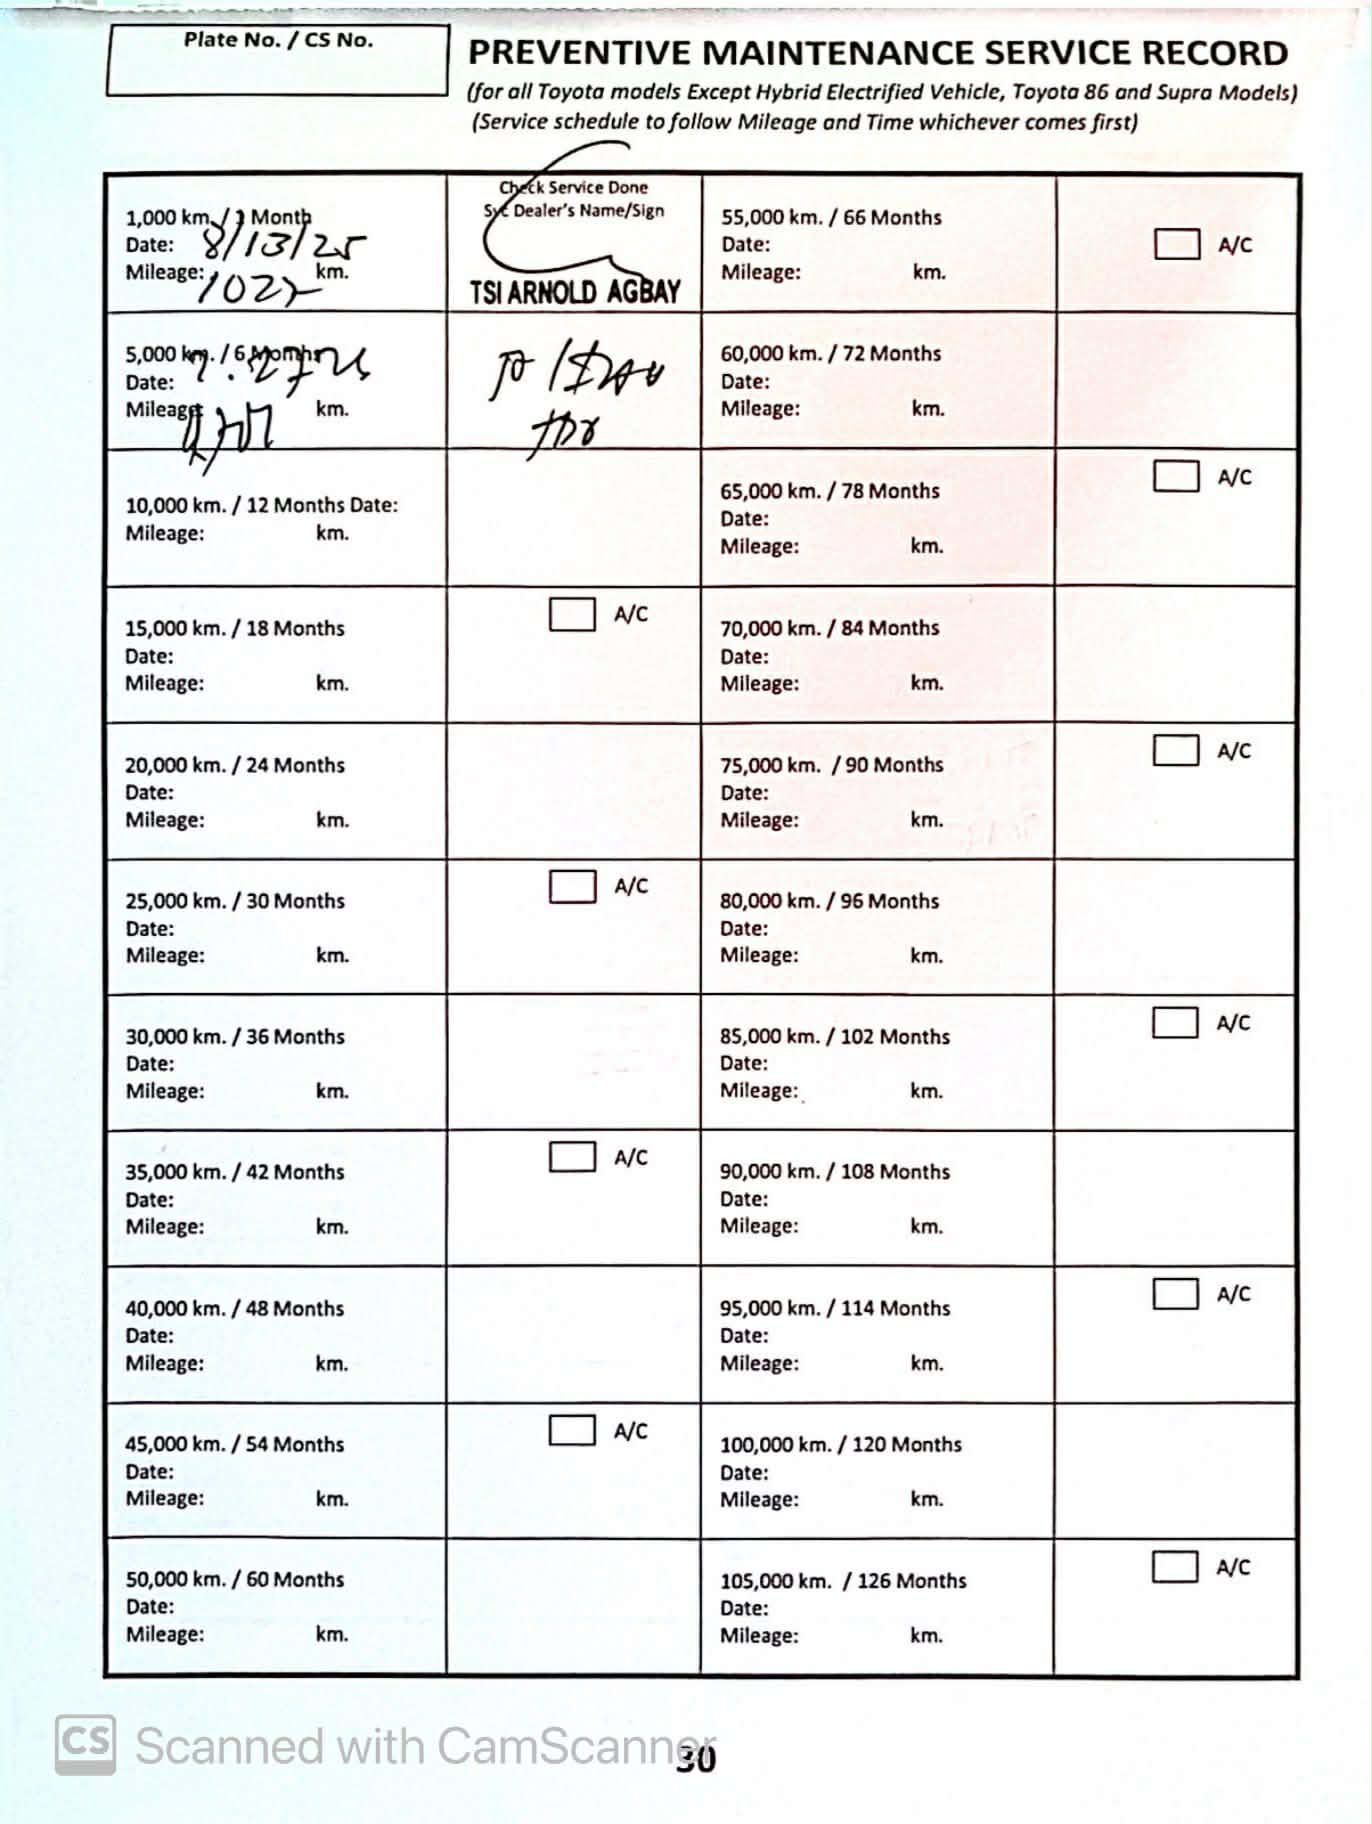 Plate No. / CS No.
PREVENTIVE MAINTENANCE SERVICE RECORD
(for all Toyota models Except Hybrid Electrified Vehicle, Toyota 86 and Supra Models)
(Service schedule to follow Mileage and Time whichever comes first)
1,000 km. / 1 Month
Date: 8/13/25
Mileage: 1022 km.
Check Service Done
Dealer's Name/Sign
TSI ARNOLD AGBAY
5,000 km. / 6 Months
Date:
Mileage: km.
10,000 km. / 12 Months Date:
Mileage: km.
15,000 km. / 18 Months
Date:
Mileage: km.
A/C
20,000 km. / 24 Months
Date:
Mileage: km.
25,000 km. / 30 Months
Date:
Mileage: km.
A/C
30,000 km. / 36 Months
Date:
Mileage: km.
35,000 km. / 42 Months
Date:
Mileage: km.
A/C
40,000 km. / 48 Months
Date:
Mileage: km.
45,000 km. / 54 Months
Date:
Mileage: km.
A/C
50,000 km. / 60 Months
Date:
Mileage: km.
55,000 km. / 66 Months
Date:
Mileage: km.
A/C
60,000 km. / 72 Months
Date:
Mileage: km.
65,000 km. / 78 Months
Date:
Mileage: km.
A/C
70,000 km. / 84 Months
Date:
Mileage: km.
75,000 km. / 90 Months
Date:
Mileage: km.
A/C
80,000 km. / 96 Months
Date:
Mileage: km.
85,000 km. / 102 Months
Date:
Mileage: km.
A/C
90,000 km. / 108 Months
Date:
Mileage: km.
95,000 km. / 114 Months
Date:
Mileage: km.
A/C
100,000 km. / 120 Months
Date:
Mileage: km.
105,000 km. / 126 Months
Date:
Mileage: km.
A/C
CS Scanned with CamScanner
30